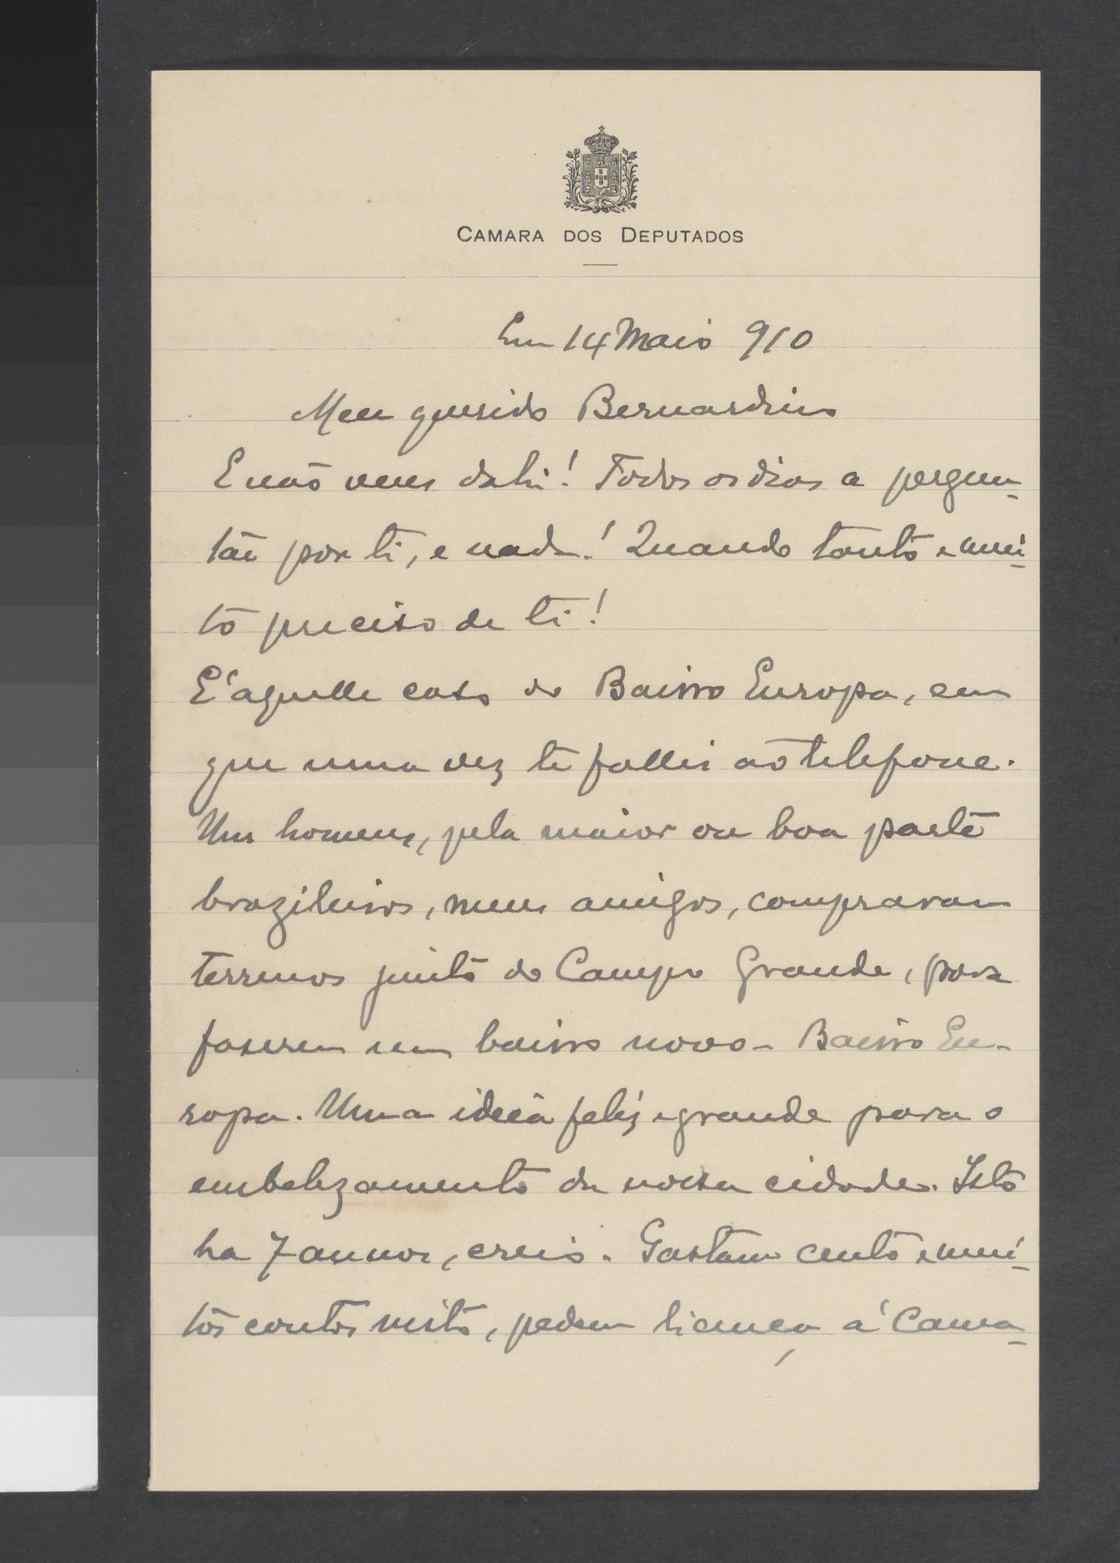 CAMARA DOS DEPUTADOS
Em 14 Maio 910
Meu querido Bernardino
E não vens dahi! Todos os dias a pergun-
tar por ti, e nada! Quando tanto e mui-
to preciso de ti!
E' aquelle caso do Bairro Europa, em
que uma vez te fallei ao telefone.
Uns homens, pela maior ou boa parte
brazileiros, meus amigos, compraram
terrenos junto do Campo Grande, para
fazerem um bairro novo - Bairro Eu-
ropa. Uma ideia feliz e grande para o
embelezamento da nossa cidade. Isto
ha 7 annos, creio. Gastam cento e mui-
tos contos nisto, pedem licença á Cama-